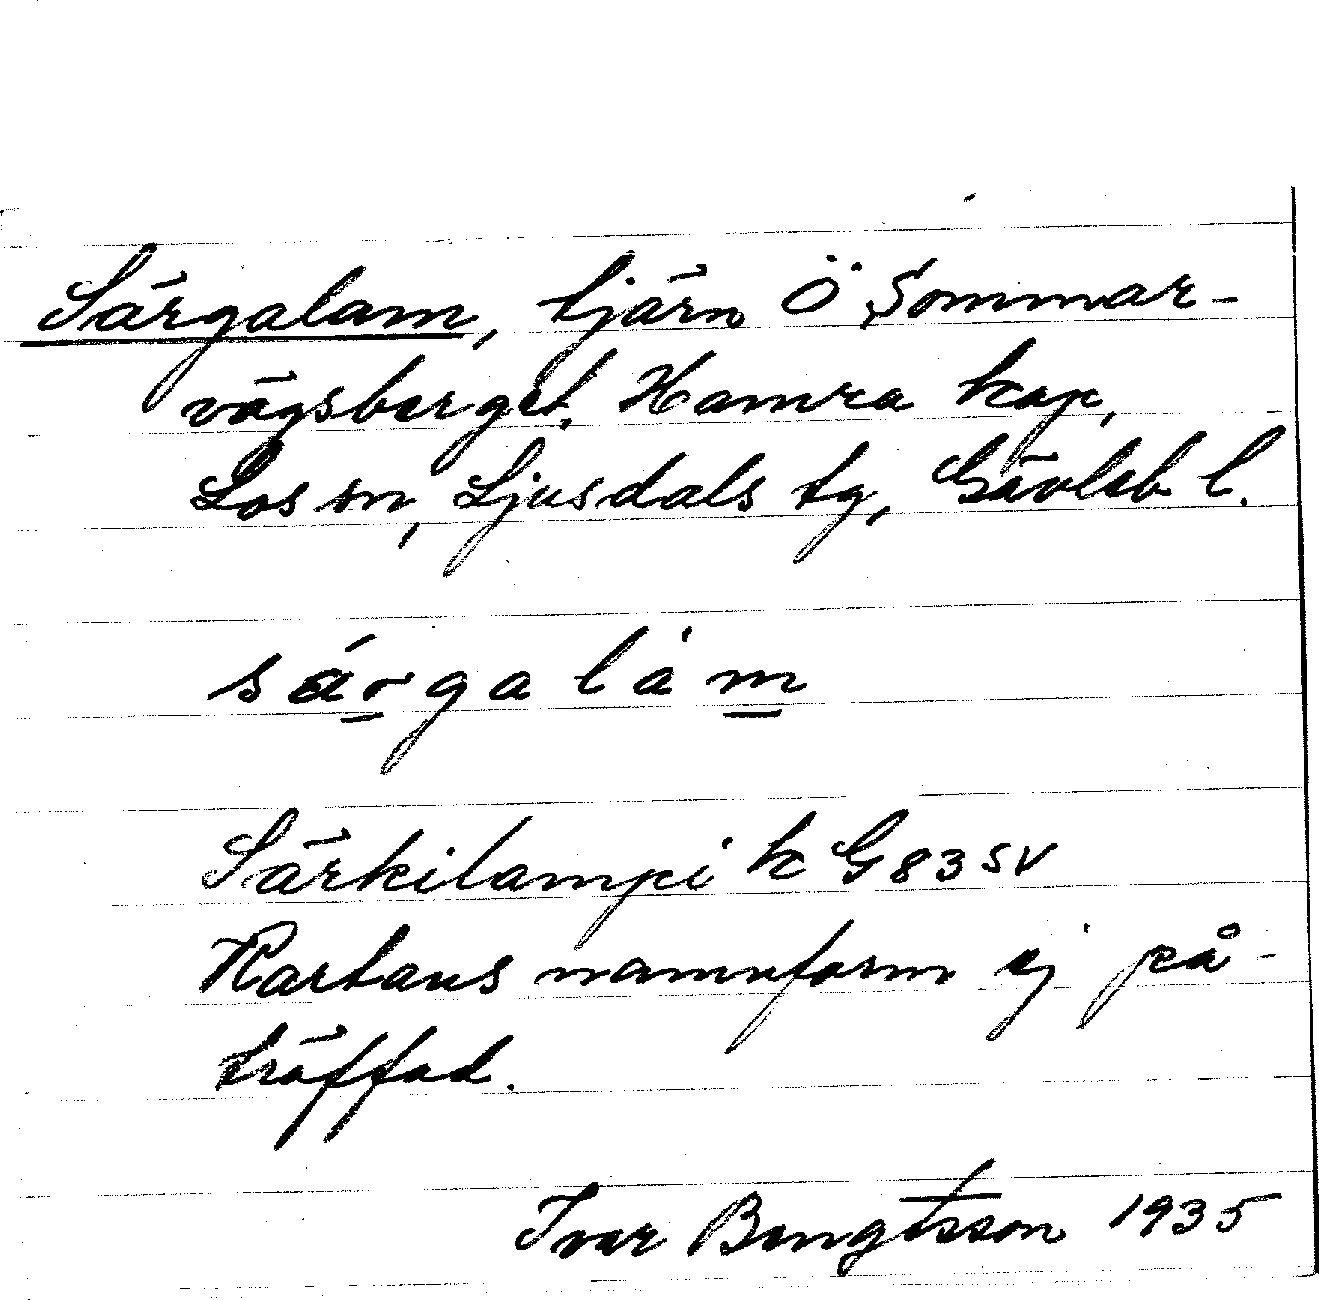 Särgalam, tjärn Ö Sommar-
vägsberget, Hamra kap,
Los sn, Ljusdals tg, Gävleb l.
särgalam
Särkilampi k G83 SV
Kartans namnform ej på-
träffad.
Ivar Bengtsson 1935